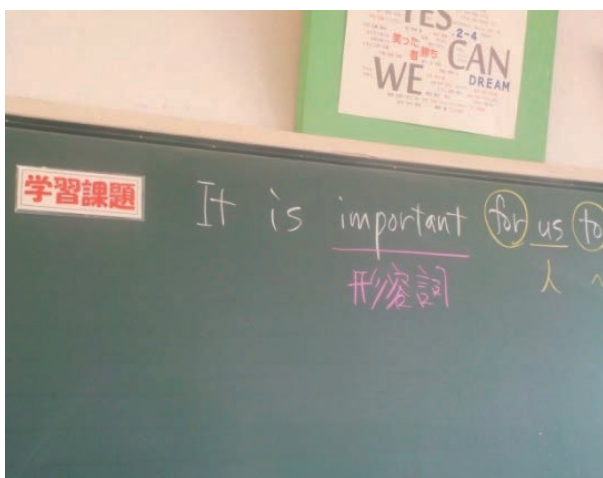 YES
2-4
笑った
者
勝ち
CAN
WE
DREAM
学習課題
It is important for us to
形容詞
人 ~